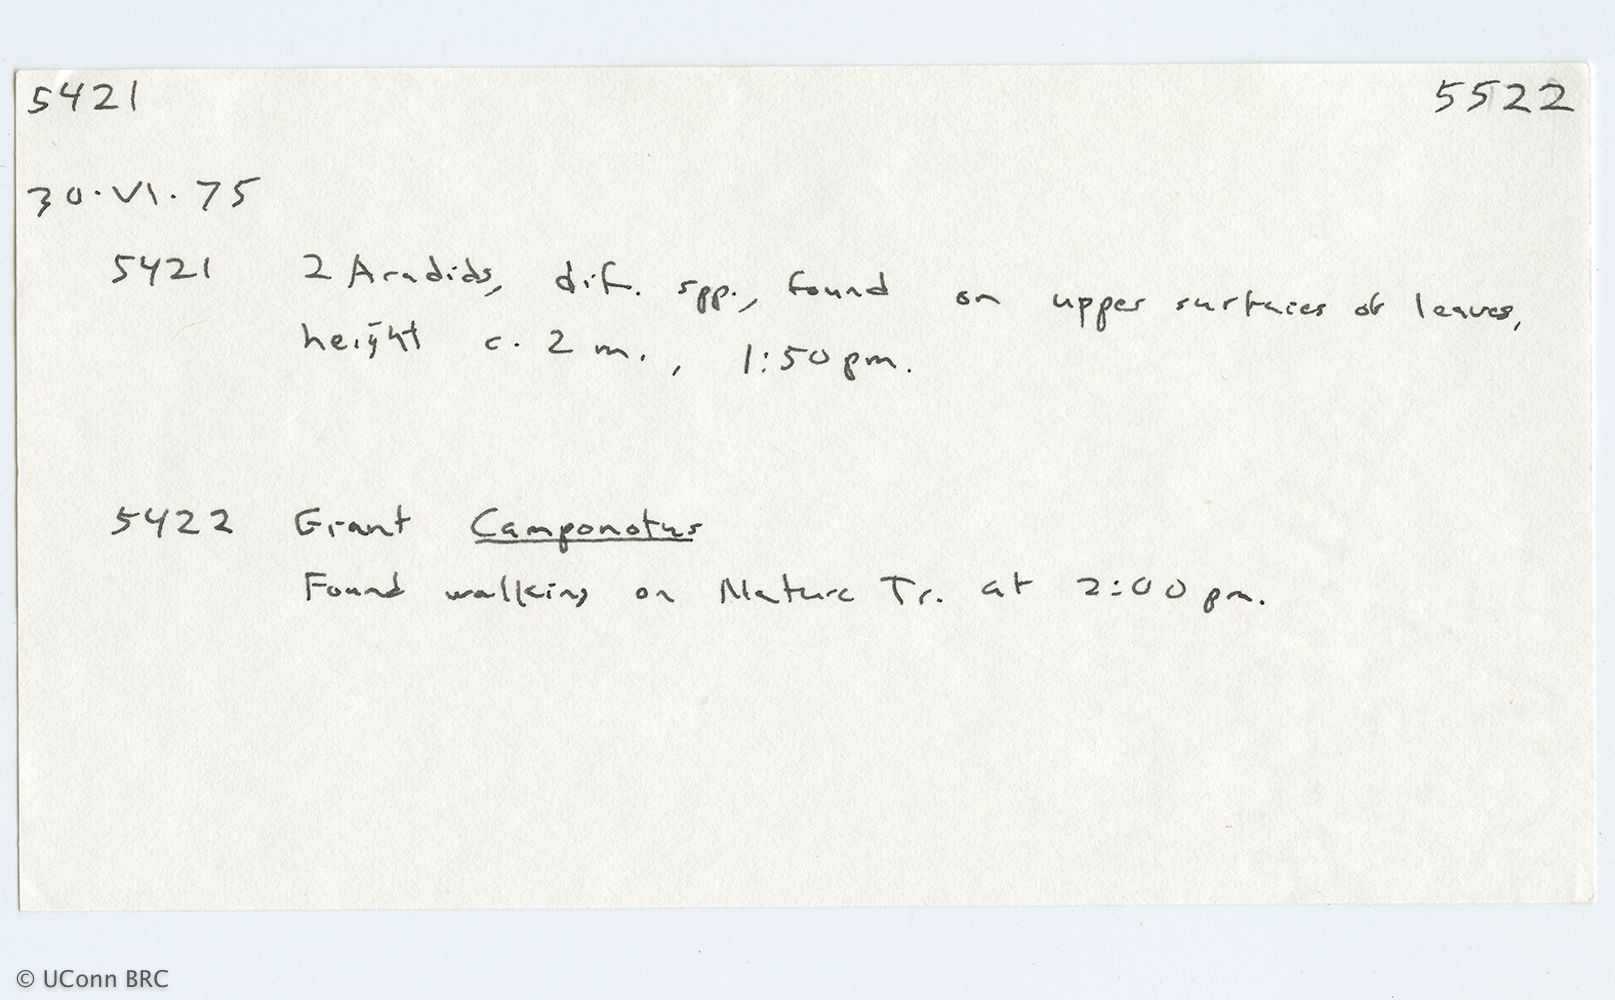 5421 5522
30.VI.75
5421 2 Aradids, dif. spp., found on upper surfaces of leaves,
height c. 2 m., 1:50 pm.
5422 Giant Camponotus
Found walking on Nature Tr. at 2:00 pm.
© UConn BRC